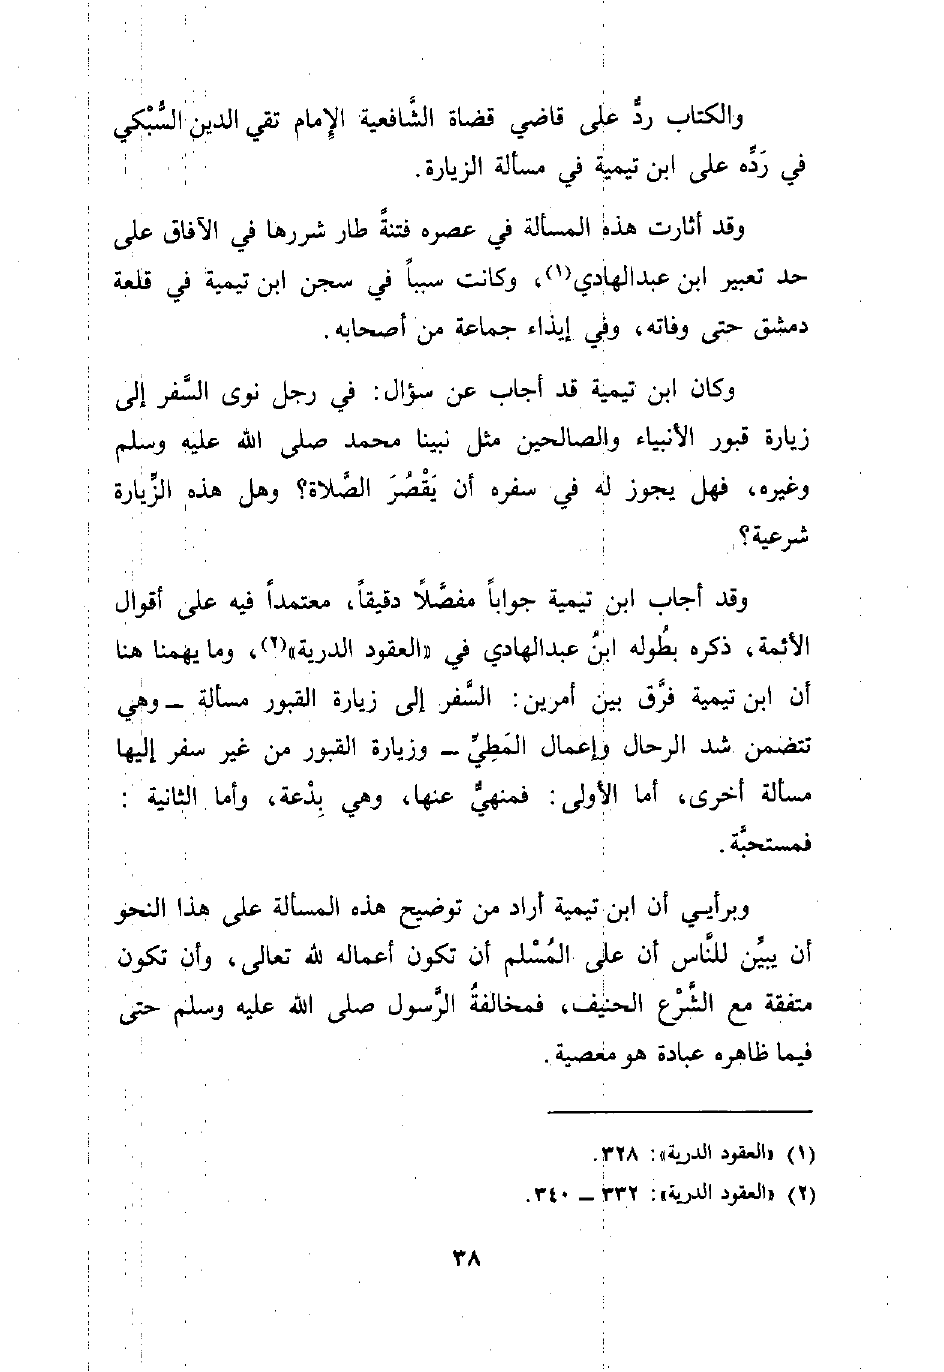 والكتاب ردٌّ على قاضي قضاة الشَّافعية الإمام تقي الدين السُّبْكي
في رَدِّه على ابن تيمية في مسألة الزيارة.
وقد أثارت هذه المسألة في عصره فتنةً طار شررها في الآفاق على
حد تعبير ابن عبدالهادي(١)، وكانت سبباً في سجن ابن تيمية في قلعة
دمشق حتى وفاته، وفي إيذاء جماعة من أصحابه.
وكان ابن تيمية قد أجاب عن سؤال: في رجل نوى السَّفر إلى
زيارة قبور الأنبياء والصالحين مثل نبينا محمد صلى الله عليه وسلم
وغيره، فهل يجوز له في سفره أن يَقْصُرَ الصَّلاة؟ وهل هذه الزِّيارة
شرعية؟
وقد أجاب ابن تيمية جواباً مفصَّلاً دقيقاً، معتمداً فيه على أقوال
الأئمة، ذكره بطُوله ابنُ عبدالهادي في «العقود الدرية»(٢)، وما يهمنا هنا
أن ابن تيمية فرَّق بين أمرين: السَّفر إلى زيارة القبور مسألة ــ وهي
تتضمن شد الرحال وإعمال المَطِيِّ ــ وزيارة القبور من غير سفر إليها
مسألة أخرى، أما الأولى: فمنهيٌّ عنها، وهي بِدْعة، وأما الثانية:
فمستحبَّة.
وبرأيي أن ابن تيمية أراد من توضيح هذه المسألة على هذا النحو
أن يبيِّن للنَّاس أن على المُسْلم أن تكون أعماله لله تعالى، وأن تكون
متفقة مع الشَّرْع الحنيف، فمخالفةُ الرَّسول صلى الله عليه وسلم حتى
فيما ظاهره عبادة هو معصية.
(١) «العقود الدرية»: ٣٢٨.
(٢) «العقود الدرية»: ٣٣٢ ــ ٣٤٠.
٣٨